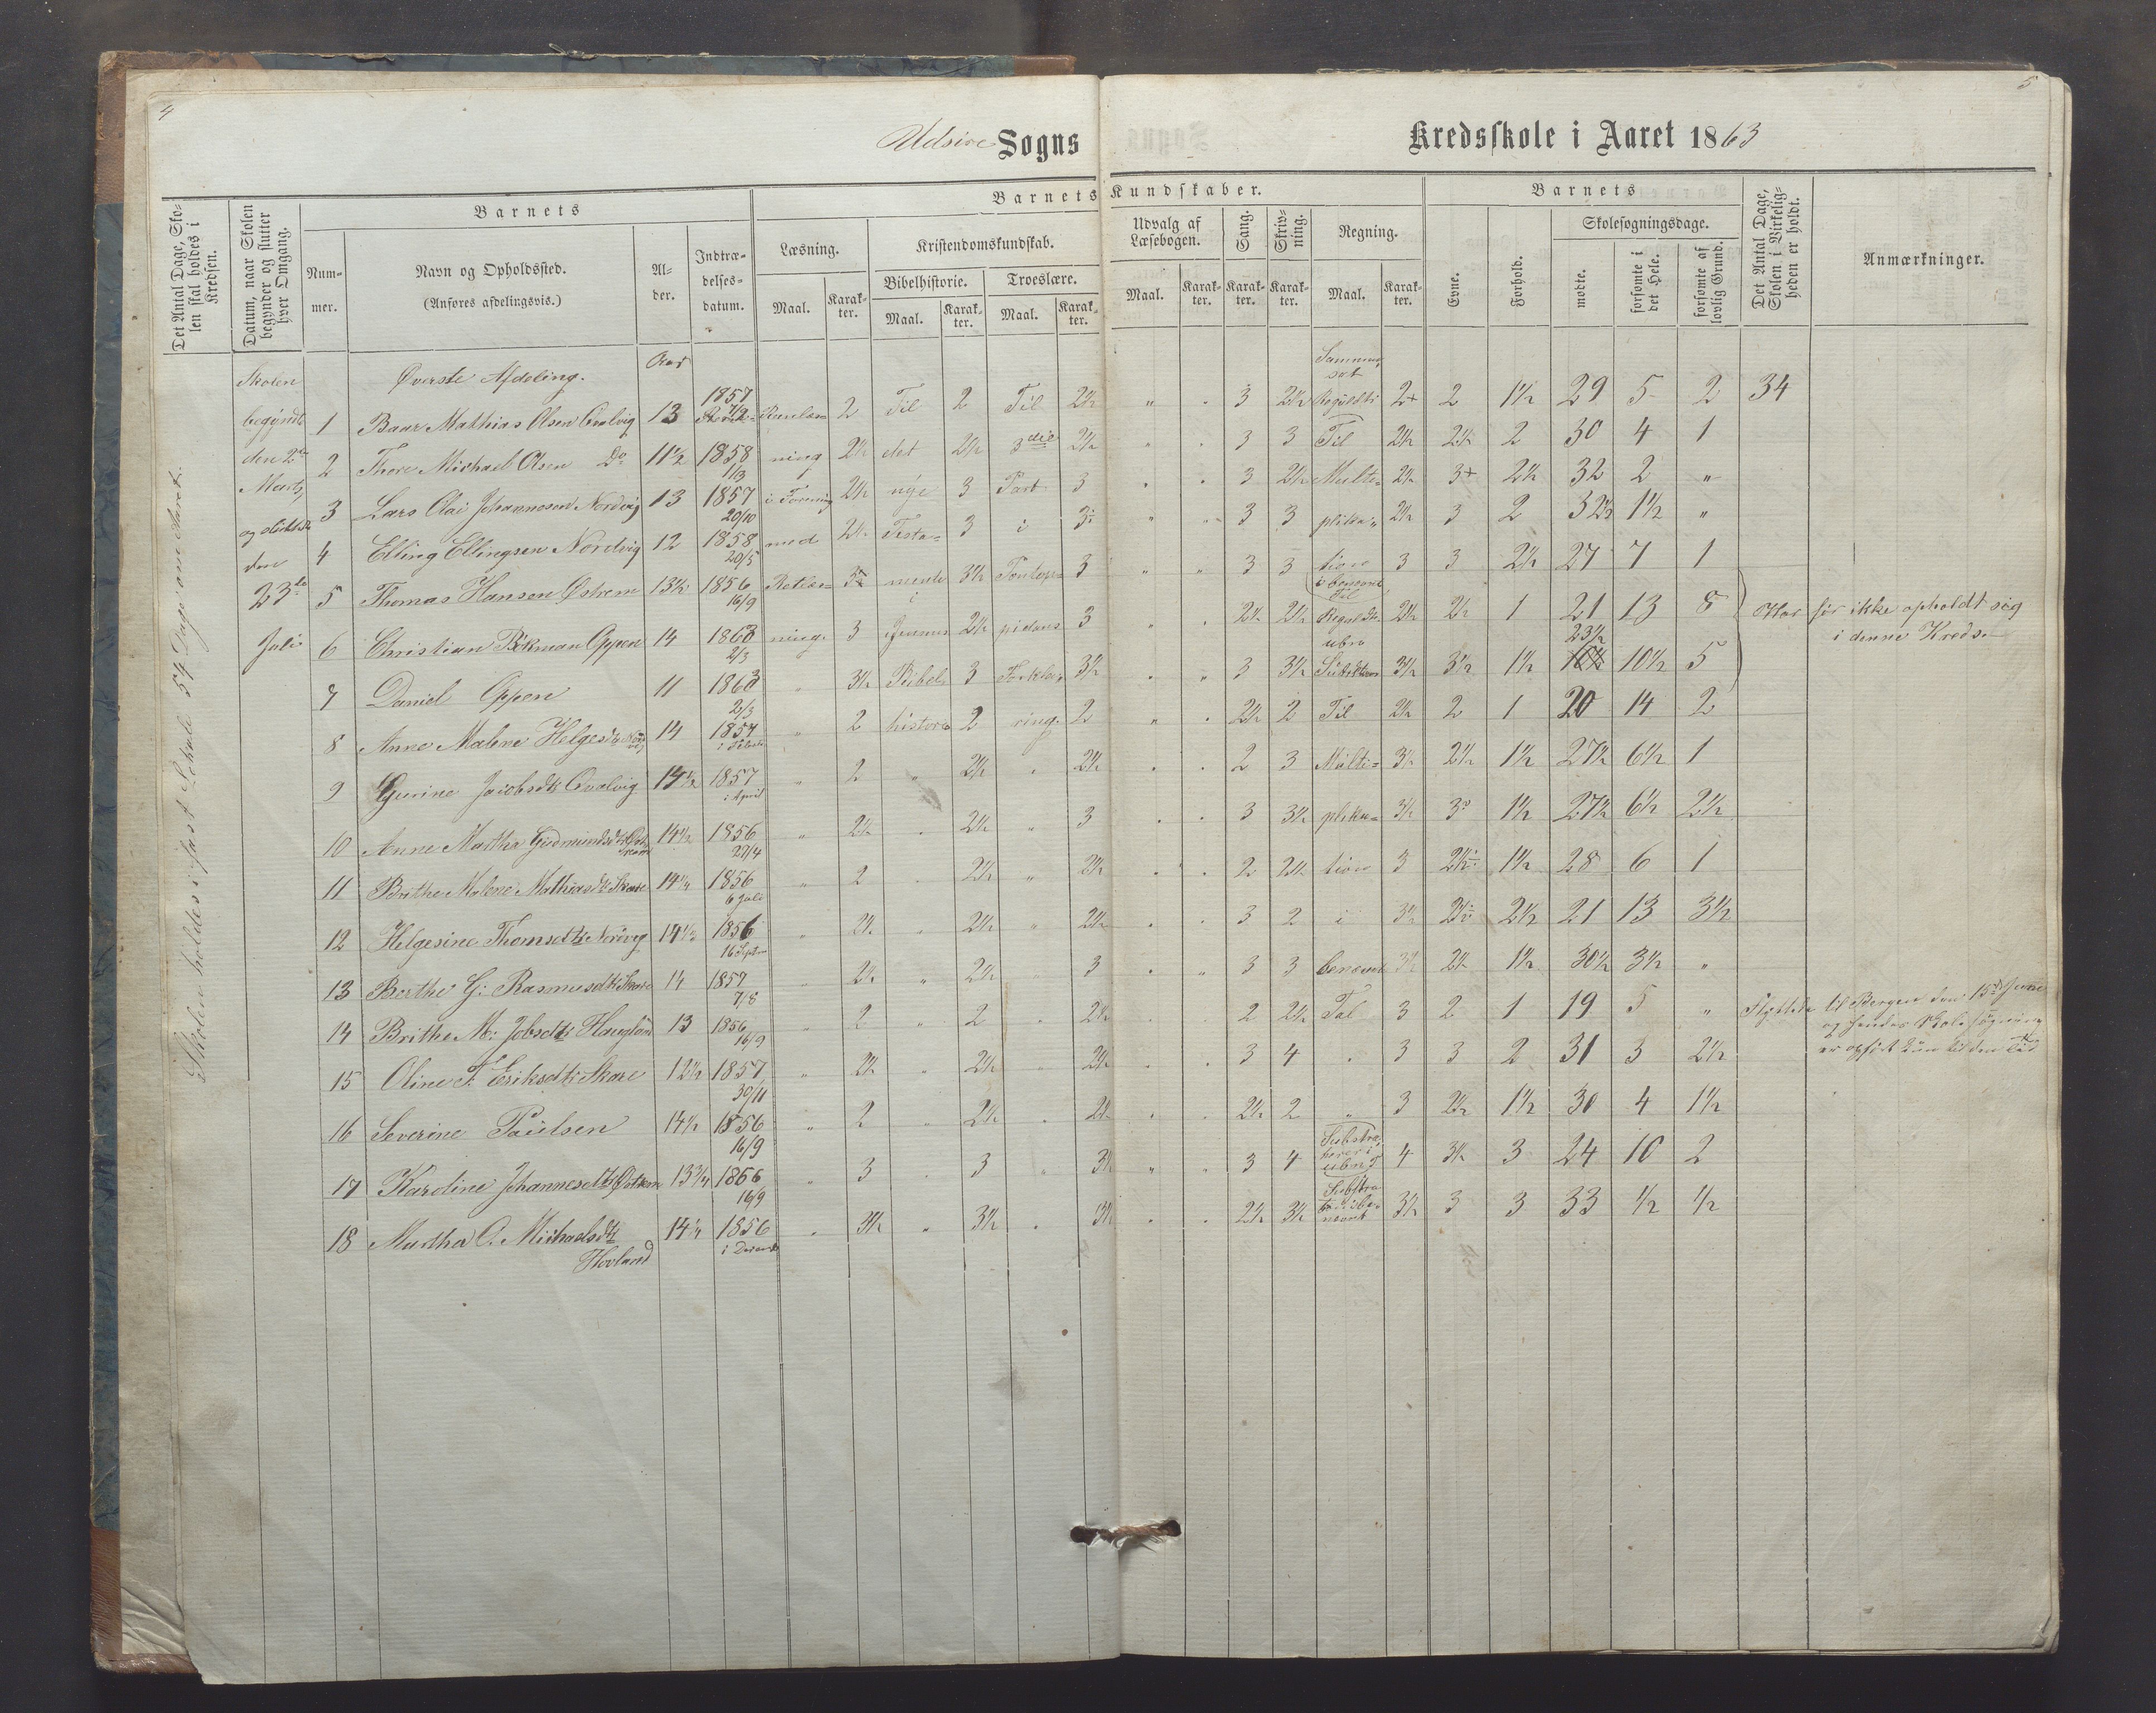 4
5
Udsire Sogns Kredsskole i Aaret 1863
Det Antal Dage, Skolen skal holdes i Kredsen.
Datum, naar Skolen begynder og slutter hver Omgang.
Barnets
Nummer.
Navn og Opholdssted.
(Anføres afdelingsvis.)
Alder.
Indtrædelsesdatum.
Barnets Kundskaber.
Læsning.
Kristendomskundskab.
Bibelhistorie.
Troeslære.
Maal.
Karakter.
Maal.
Karakter.
Maal.
Karakter.
Udvalg af Læsebogen.
Sang.
Skrivning.
Regning.
Maal.
Karakter.
Karakter.
Karakter.
Maal.
Karakter.
Barnets
Evne.
Forhold.
Skolesøgningsdage.
mødte.
forsømte i det Hele.
forsømte af lovlig Grund.
Det Antal Dage, Skolen i Virkeligheden er holdt.
Anmærkninger.
Skolen holdes i fast Lokale 54 Dage om Aaret.
Skolen
begyndte
den 2den
Marts
og sluttede
den
23de
Juli
Øverste Afdeling.
Aar
1 Baar Mathias Olsen Qvalvig 13 1857 2 Til 2 Til 2½ " " 3 2½ 2+ 2 1½ 29 5 2 34
2 Thore Michael Olsen Do 11½ 1858 1/3 ning 2½ det 2½ 3die 2½ " " 3 3 Til 2½ 2½ 2 30 4 1
3 Lars Olai Johannesen Nordvig 13 1857 20/10 i Forening 2½ nye 3 Part 3 " " 3 2½ Multi= 2½ 3+ 2½ 32 2 "
4 Elling Ellingsen Nordvig 12 1858 20/5 med 2½ Testa= 3 i 3 " " 3 3 plika= 2½ 3 2 32½ 1½ "
5 Thomas Hansen Østrem 13½ 1856 16/9 3 mente 3½ Pontop= 3 " " 3 3 tion 3 3 2½ 27 7 1
6 Christian Bökman Oppen 14 1863 2/3 ning. 3 2½ pidans 3 " " 2½ 2½ 2½ 2½ 1 21 13 8 Har før ikke opholdt sig
i denne Kreds.
7 Daniel Oppen 11 1863 2/3 " 3½ Bibel 3 Forkla= 3½ " " 3 3½ 3½ 3½ 1½ 23½ 10½ 5
8 Anne Malene Helgesdtr 14 1857 " 2 historie 2 ring. 2 " " 2½ 2 Til 2½ 2 1 20 14 2
9 Gurine Jacobsdtr Qvalvig 14½ 1857 i April " 2 " 2½ " 2½ " " 2 3 Multi= 3½ 2½ 1½ 27½ 6½ 1
10 Anne Martha Gudmundsdtr Østrem 14½ 1856 27/4 " 2½ " 2½ " 3 " " 3 3½ plika= 3½ 3 1½ 27½ 6½ 2½
11 Brithe Malene Mathiasdtr Skare 14¼ 1856 6 Juli " 2 " 2½ " 2½ " " 2 2½ tion 3 2½ 1½ 28 6 1
12 Helgesine Thomsdtr Nordvig 14½ 1856 16 Septr " 2½ " 2½ " 2½ " " 3 2 i 3½ 2½ 2½ 21 13 3½
13 Berthe G: Rasmusdtr Skare 14 1857 7/8 " 2½ " 2½ " 3 " " 3 3 benævnt 3½ 2½ 1½ 30½ 3½ "
14 Brithe M: Jobsdtr Haugland 13 1856 16/9 " 2 " 2 " 2½ " " 2 2½ Tal 3 2 1 19 5 " Flyttede til Bergen den 15de Juni
og hendes Skolesøgning
er opført kun til den Tid
15 Oline F. Eriksdtr Skare 12½ 1857 30/11 " 2½ " 2½ " 2½ " " 3 4 " 3 3 2 31 3 2½
16 Severine Paulsen 14½ 1856 16/9 " 2 " 2½ " 2½ " " 2½ 2 " 3 2½ 1½ 30 4 1½
17 Karoline Johannesdtr Østrem 13¾ 1856 16/9 " 3 " 3 " 3½ " " 3 4 4 3½ 3 24 10 2
18 Martha O. Michaelsdtr 14¼ 1856 " 3½ " 3½ " 3½ " " 2½ 3½ 3½ 3 3 33 ½ ½
Hovland